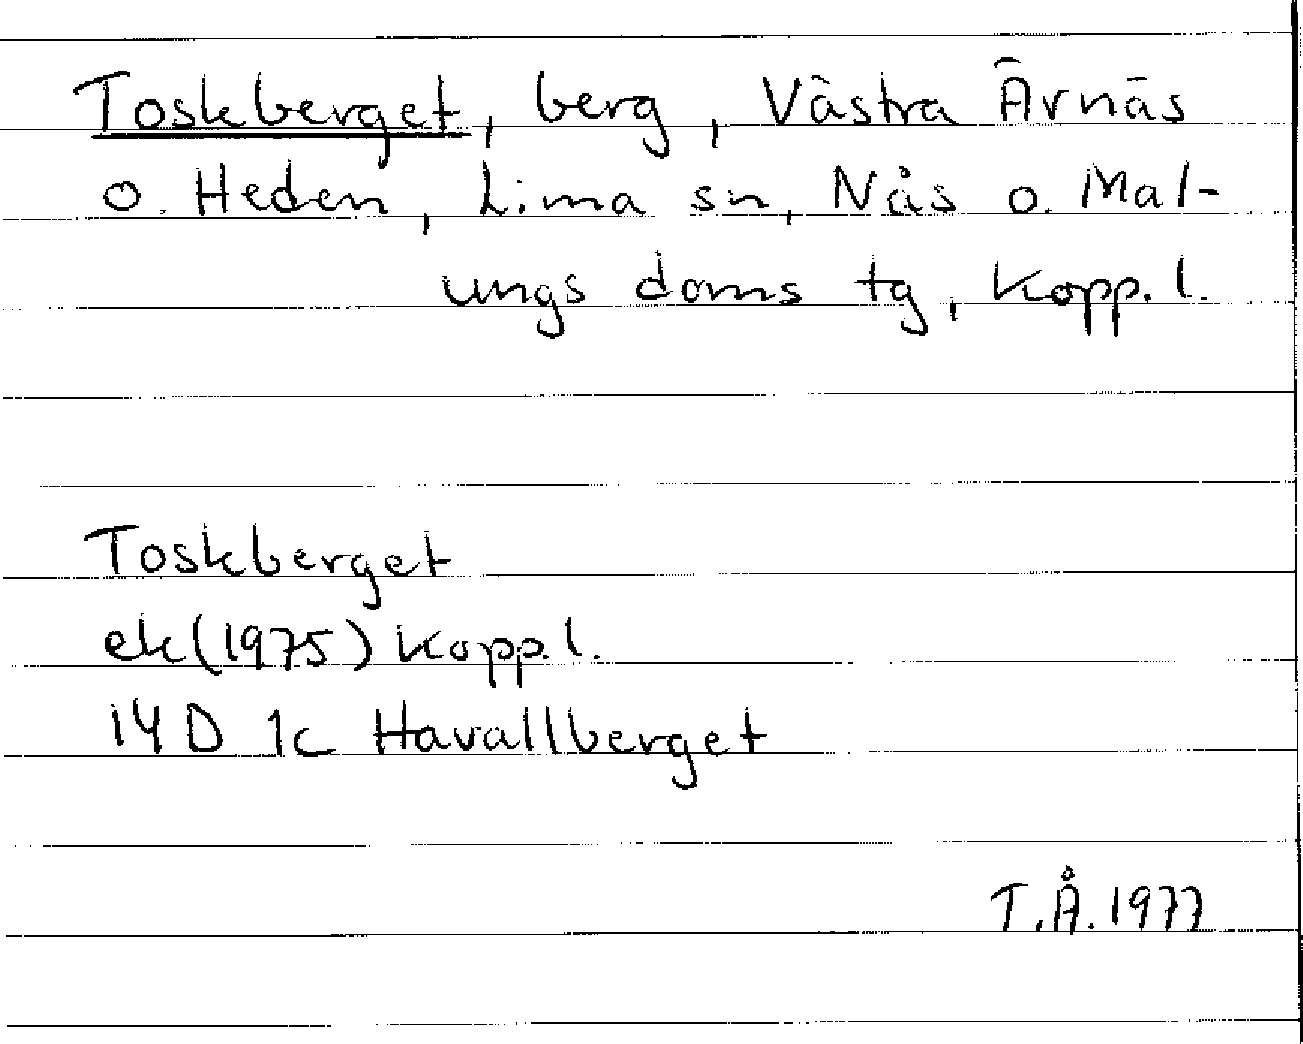 Toskberget, berg, Västra Ärnäs
o. Heden, Lima sn, Nås o. Mal-
ungs doms tg, Kopp. l.
Toskberget
ek(1975) Kopp. l.
14 D 1c Havallberget
T.Å. 1977